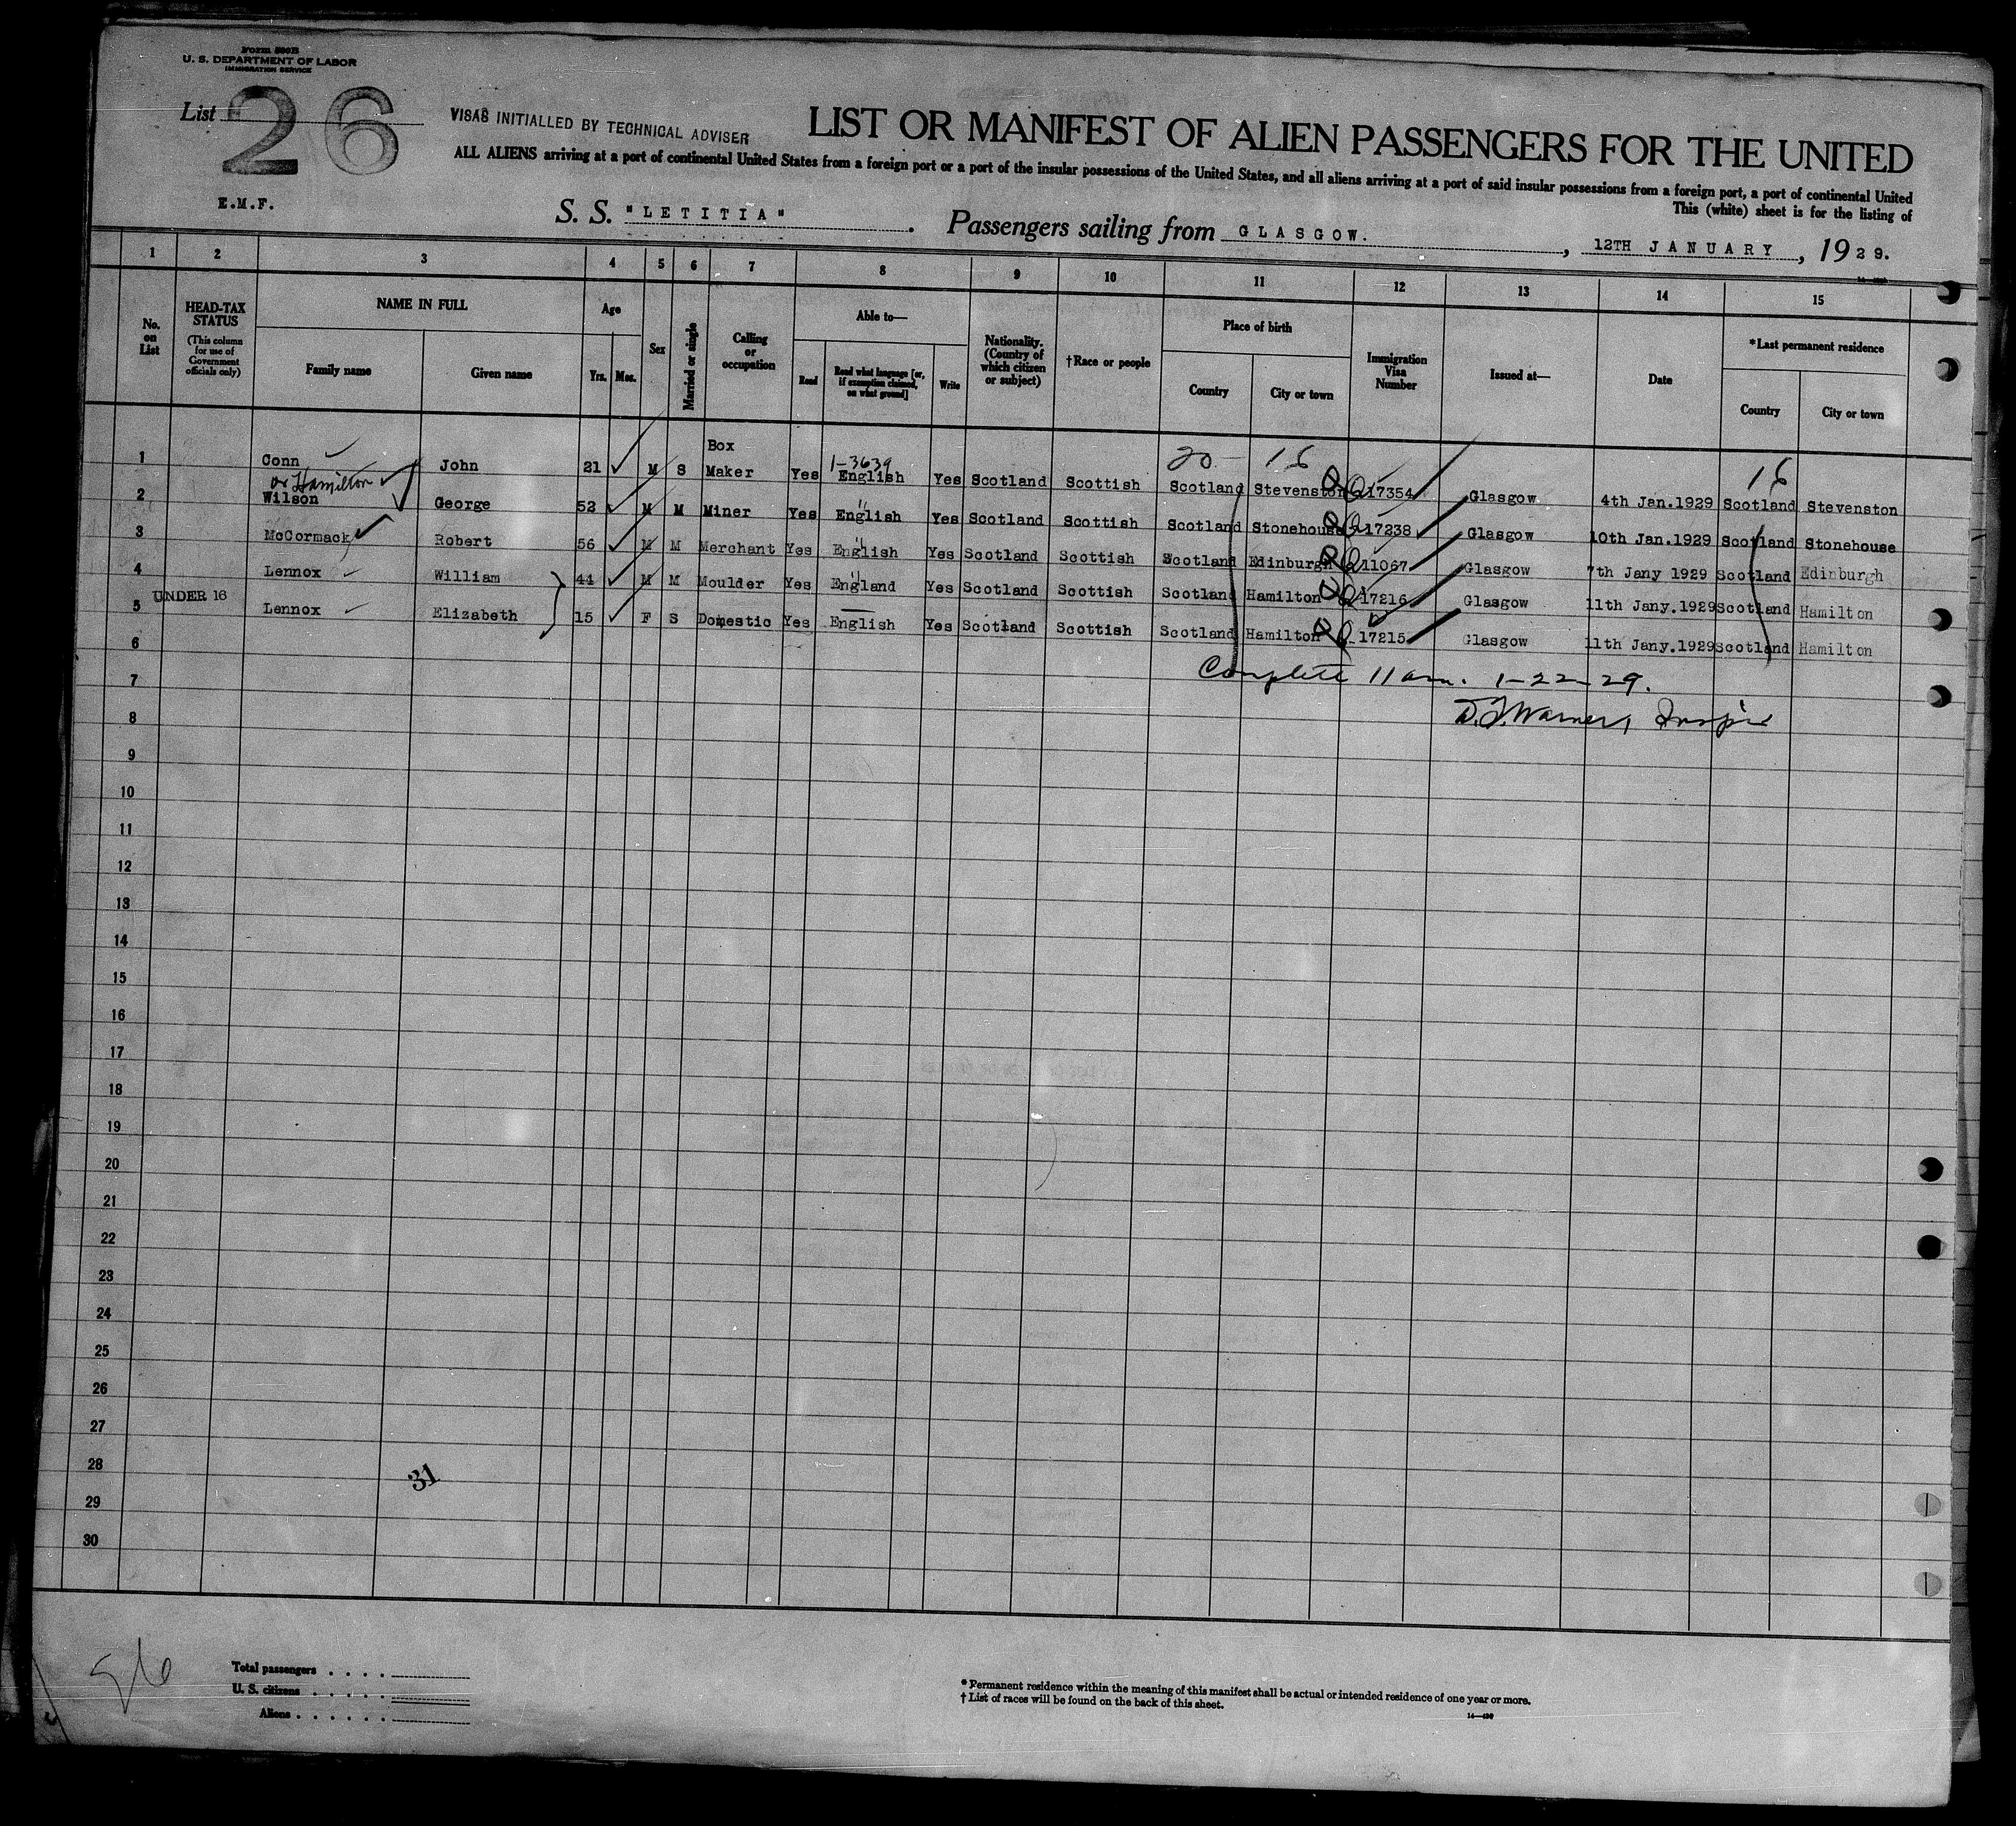 Form 500B
U. S. DEPARTMENT OF LABOR
IMMIGRATION SERVICE
List 26
VISAS INITIALLED BY TECHNICAL ADVISER
LIST OR MANIFEST OF ALIEN PASSENGERS FOR THE UNITED
ALL ALIENS arriving at a port of continental United States from a foreign port or a port of the insular possessions of the United States, and all aliens arriving at a port of said insular possessions from a foreign port, a port of continental United
This (white) sheet is for the listing of
E.M.F.
S. S. "LETITIA" . Passengers sailing from GLASGOW. , 12TH JANUARY , 1929.
1 2 3 4 5 6 7 8 9 10 11 12 13 14 15
No. on List
HEAD-TAX STATUS
(This column for use of Government officials only)
NAME IN FULL
Family name
Given name
Age
Yrs. Mos.
Sex
Married or single
Calling or occupation
Able to—
Read
Read what language [or, if exemption claimed, on what ground]
Write
Nationality. (Country of which citizen or subject)
†Race or people
Place of birth
Country
City or town
Immigration Visa Number
Issued at—
Date
*Last permanent residence
Country
City or town
20 16 16
1-3639
1 Conn John 21 M S Box Maker Yes English Yes Scotland Scottish Scotland Stevenston Q 17354 Glasgow 4th Jan.1929 Scotland Stevenston
or Hamilton
2 Wilson George 52 M M Miner Yes English Yes Scotland Scottish Scotland Stonehouse Q 17238 Glasgow 10th Jan.1929 Scotland Stonehouse
3 McCormack Robert 56 M M Merchant Yes English Yes Scotland Scottish Scotland Edinburgh Q 11067 Glasgow 7th Jany 1929 Scotland Edinburgh
4 Lennox William 44 M M Moulder Yes England Yes Scotland Scottish Scotland Hamilton Q 17216 Glasgow 11th Jany.1929 Scotland Hamilton
UNDER 16
5 Lennox Elizabeth 15 F S Domestic Yes English Yes Scotland Scottish Scotland Hamilton Q 17215 Glasgow 11th Jany.1929 Scotland Hamilton
6
Complete 11 am. 1-22-29.
7
D.J. Warner, Inspr
8
9
10
11
12
13
14
15
16
17
18
19
20
21
22
23
24
25
26
27
28
31
29
30
Total passengers
U. S. citizens
Aliens
* Permanent residence within the meaning of this manifest shall be actual or intended residence of one year or more.
† List of races will be found on the back of this sheet.